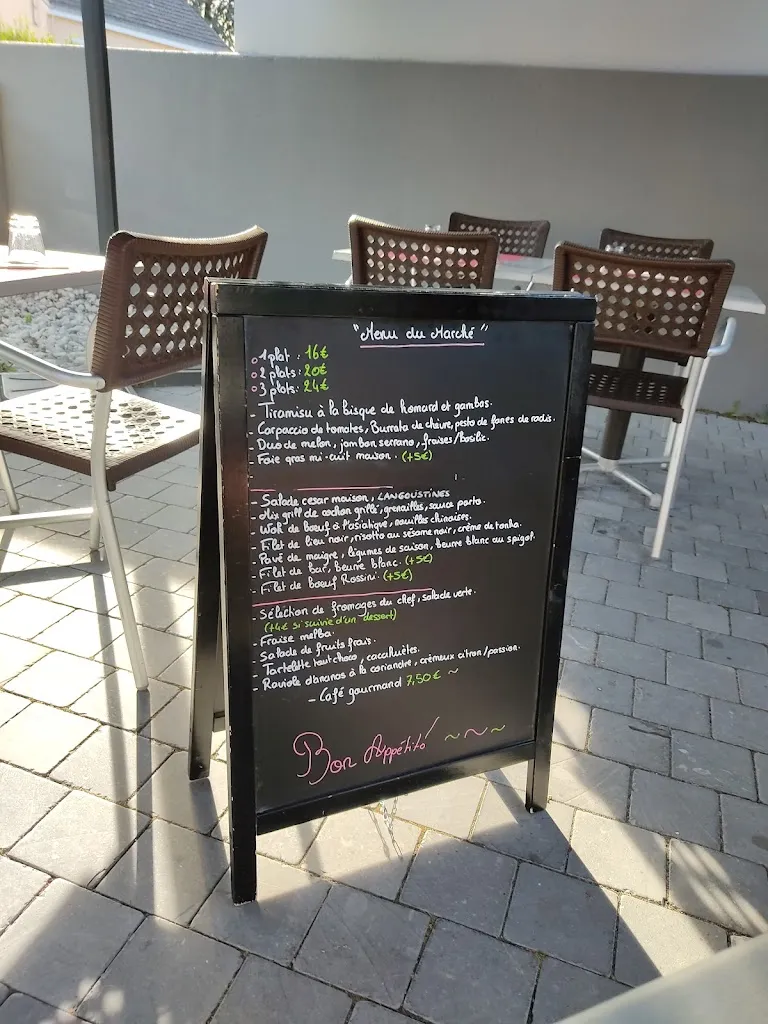 "Menu du Marché"
o 1 plat : 16€
o 2 plats : 20€
o 3 plats : 24€
- Tiramisu à la bisque de homard et gambas.
- Carpaccio de tomates, Burrata de chèvre, pesto de fanes de radis.
- Duo de melon, jambon serrano, fraises/basilic.
- Foie gras mi-cuit maison. (+5€)
- Salade cesar maison, LANGOUSTINES
- Mix grill de cochon grillé, grenailles, sauce porto.
- Wok de bœuf à l'asiatique, nouilles chinoises.
- Filet de lieu noir, risotto au sésame noir, crème de tonka.
- Pavé de maigre, légumes de saison, beurre blanc au spigol.
- Filet de bar, beurre blanc. (+5€)
- Filet de bœuf Rossini. (+5€)
- Sélection de fromages du chef, salade verte.
(+4€ si suivie d'un dessert)
- Fraise melba.
- Salade de fruits frais.
- Tartelette tout choco, cacahuètes.
- Raviole d'ananas à la coriandre, crémeux citron/passion.
- Café gourmand 7,50€ ~
Bon Appétito ~~~